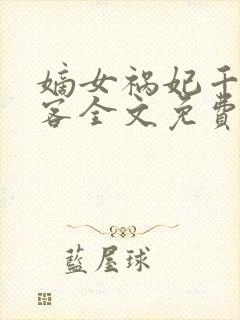 嫡女祸妃千
客全文免費
藍屋球